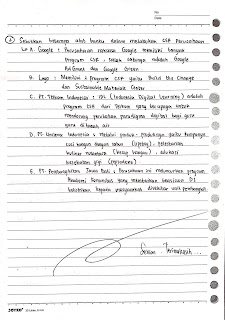 No.
Date
② Sebutkan beberapa alat bantu dalam melakukan CSR Perusahaan
A. Google : Perusahaan raksasa Google memiliki banyak
program CSR, salah satunya adalah Google
AdGrant dan Google Green
B. Lego : Memiliki 2 Program CSR yaitu Build the Change
dan Sustainable Materials Center
C. PT. Telkom Indonesia : IDL (Indonesia Digital Learning) adalah
program CSR dari Telkom yang berupaya untuk
mendorong perubahan paradigma digital bagi guru
guru ditanah air
D. PT. Unilever Indonesia : Melalui produk - produknya yaitu kampanye
cuci tangan dengan sabun (Lifebuoy), pelestarian
kuliner nusantara (kecap bango), edukasi
kesehatan gigi (Pepsodent)
E. PT. Pembangkitan Jawa Bali : Perusahaan ini meluncurkan program
Akademi Komunitas yang memberikan beasiswa D1
kelistrikan kepada masyarakat disekitar unit pembangkit